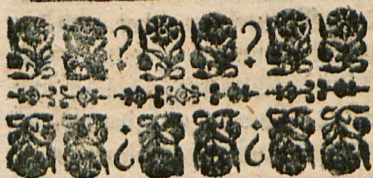 ? ?
¿ ¿